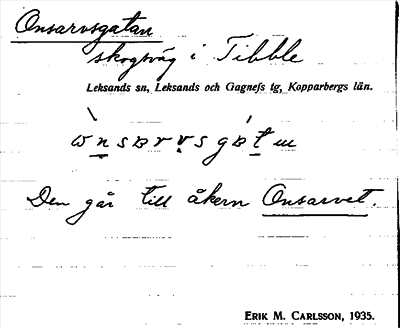 Onsarvsgatan
skogsväg i Tibble
Leksands sn, Leksands och Gagnefs tg, Kopparbergs län.
Den går till åkern Onsarvet.
ERIK M. CARLSSON, 1935.